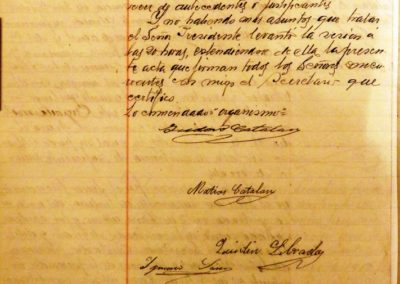 de antecedentes o justificantes
Y no habiendo mas asuntos que tratar
el Señor Presidente levantó la sesion á
las 20 horas, estendiendose de ella la presen-
te acta que firman todos los Señores concu-
rrentes con migo el Secretario que
certifico.
Lo enmendado=organismo=
Isidoro Catalan
Matias Catalan
Quintin Librada
Ignacio